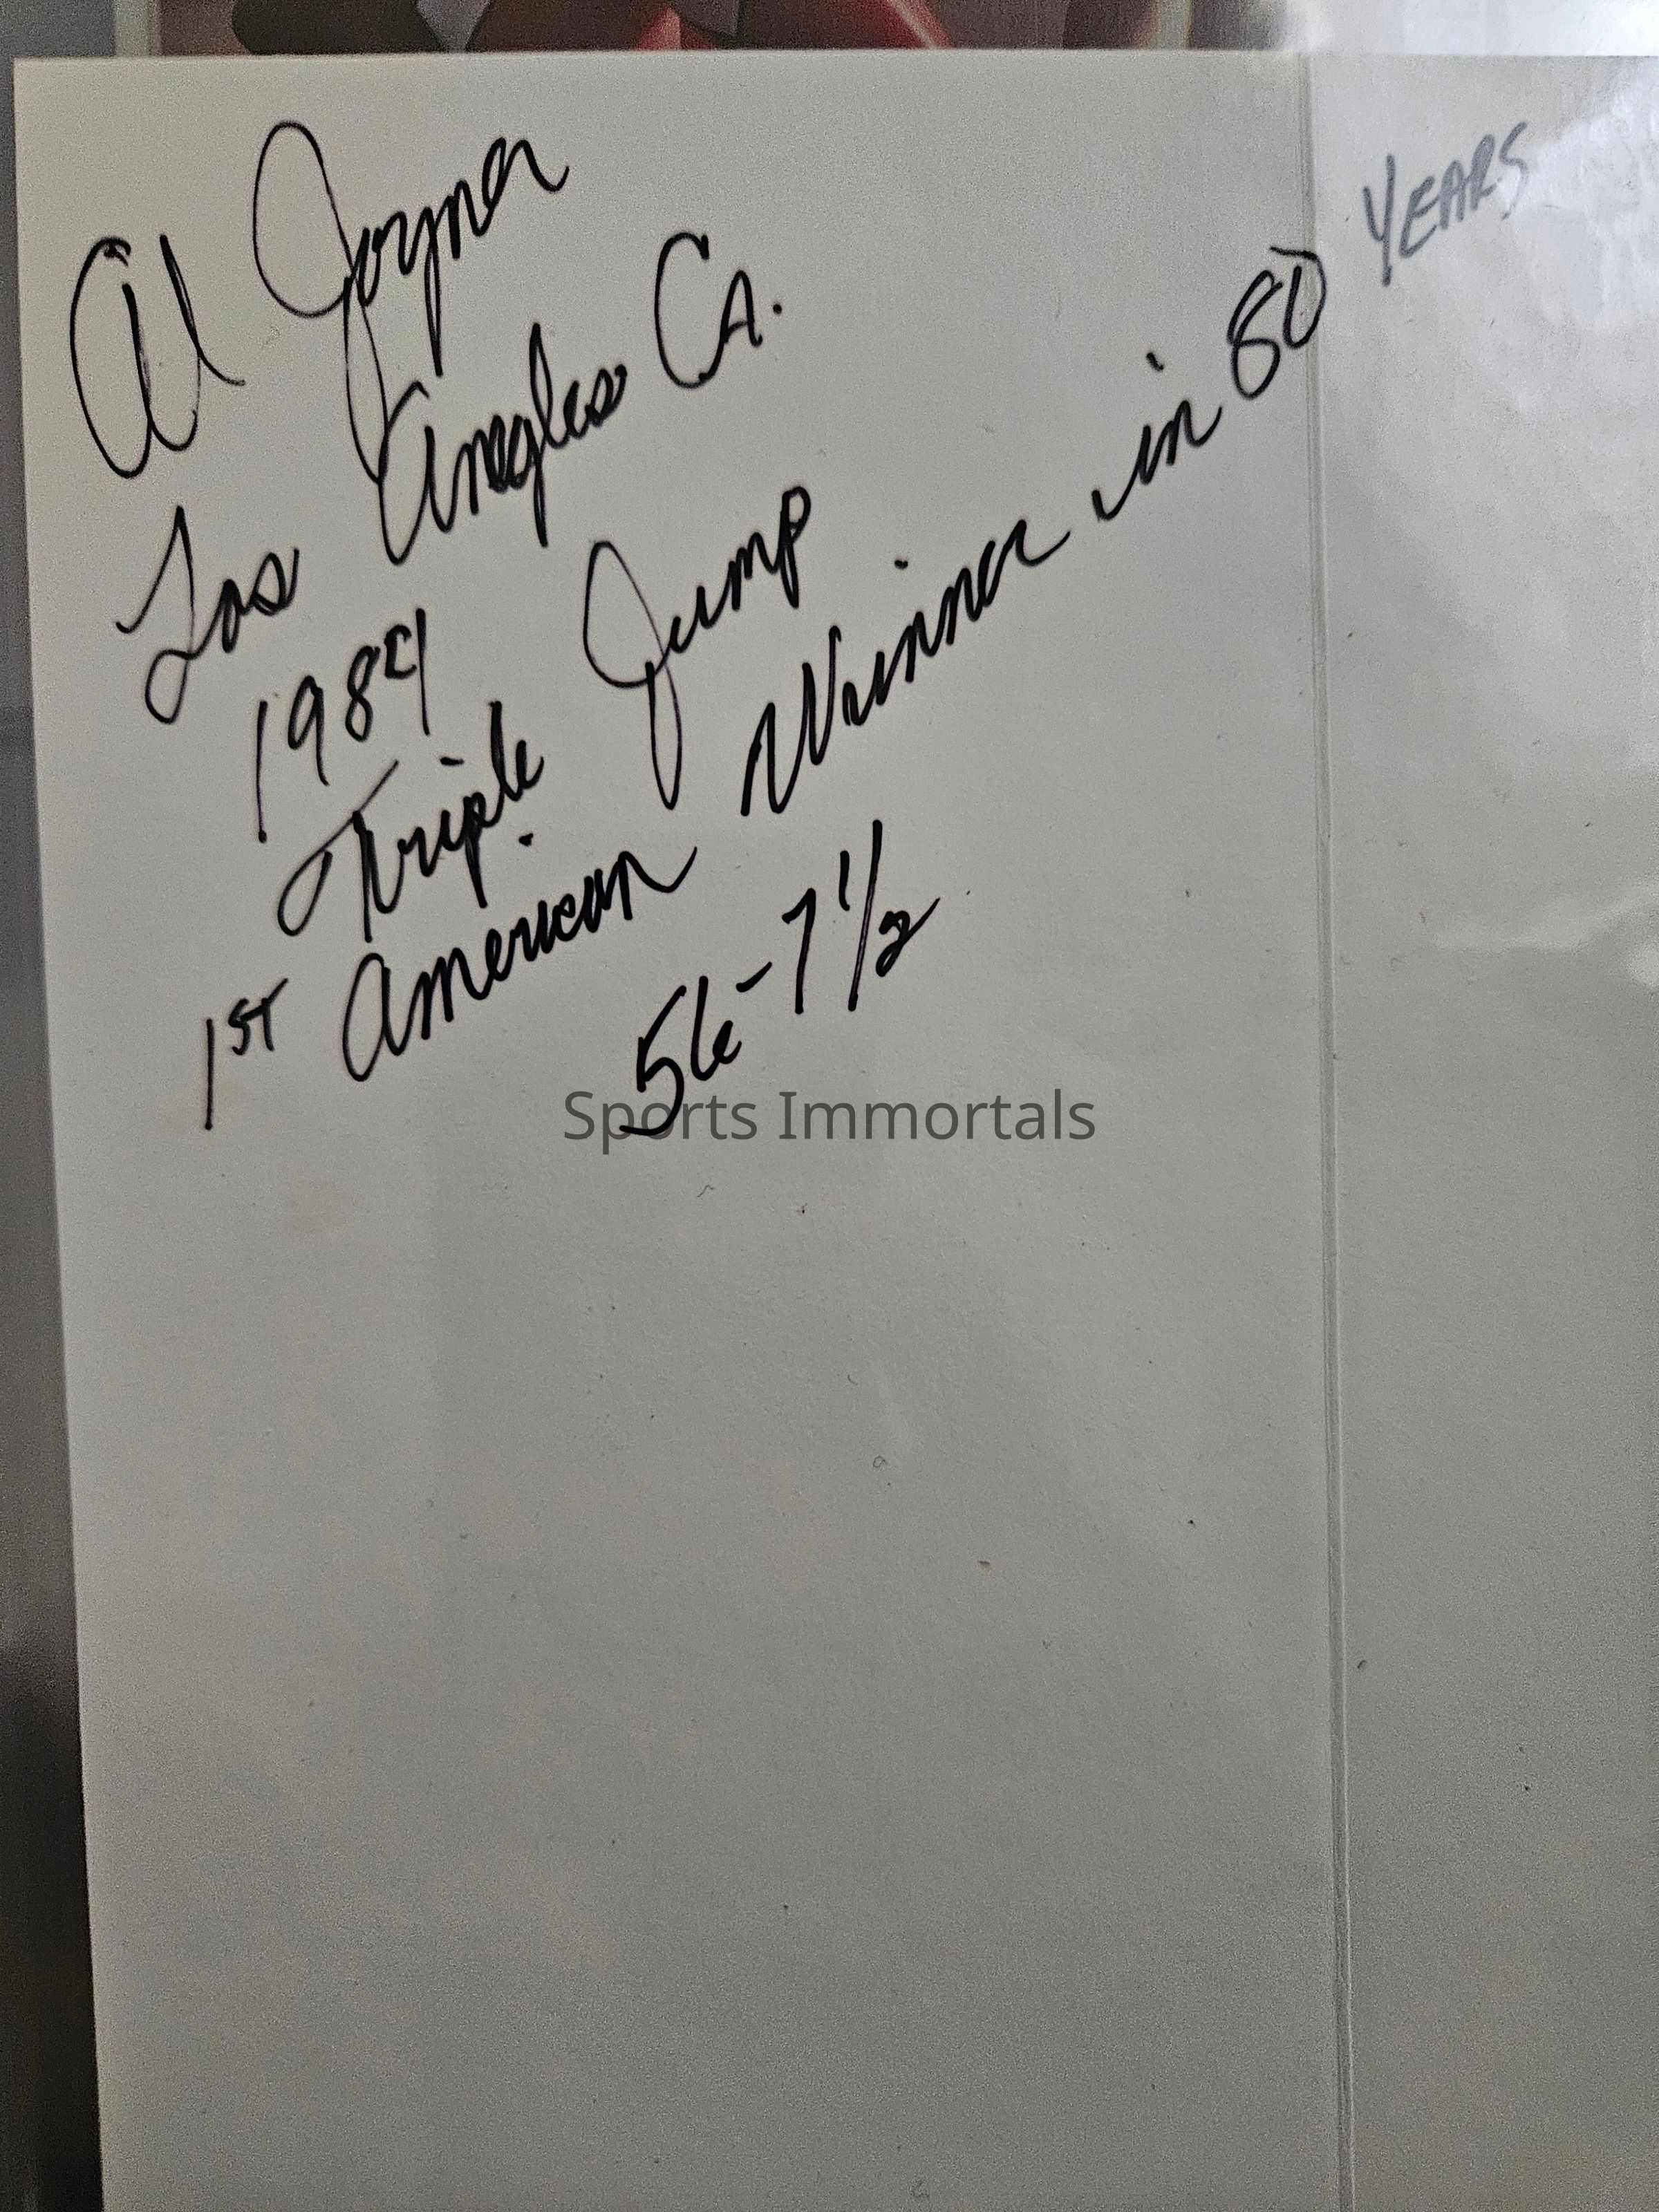 Al Joyner
Los Anegles CA.
1984
Triple Jump
1ST American Winner in 80 YEARS
56-7 1/2
Sports Immortals